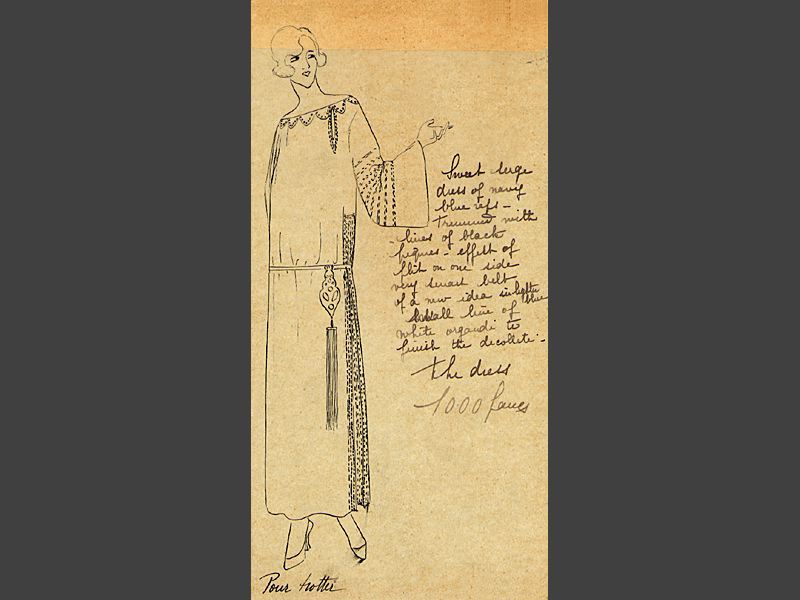 Sweet serge
dress of navy
blue reps -
Trimmed with
lines of black
peques - effect of
plit on one side
very smart belt
of a new idea in lighter blue
small line of
white organdi to
finish the decollete -
The dress
1000 francs
Pour trotter